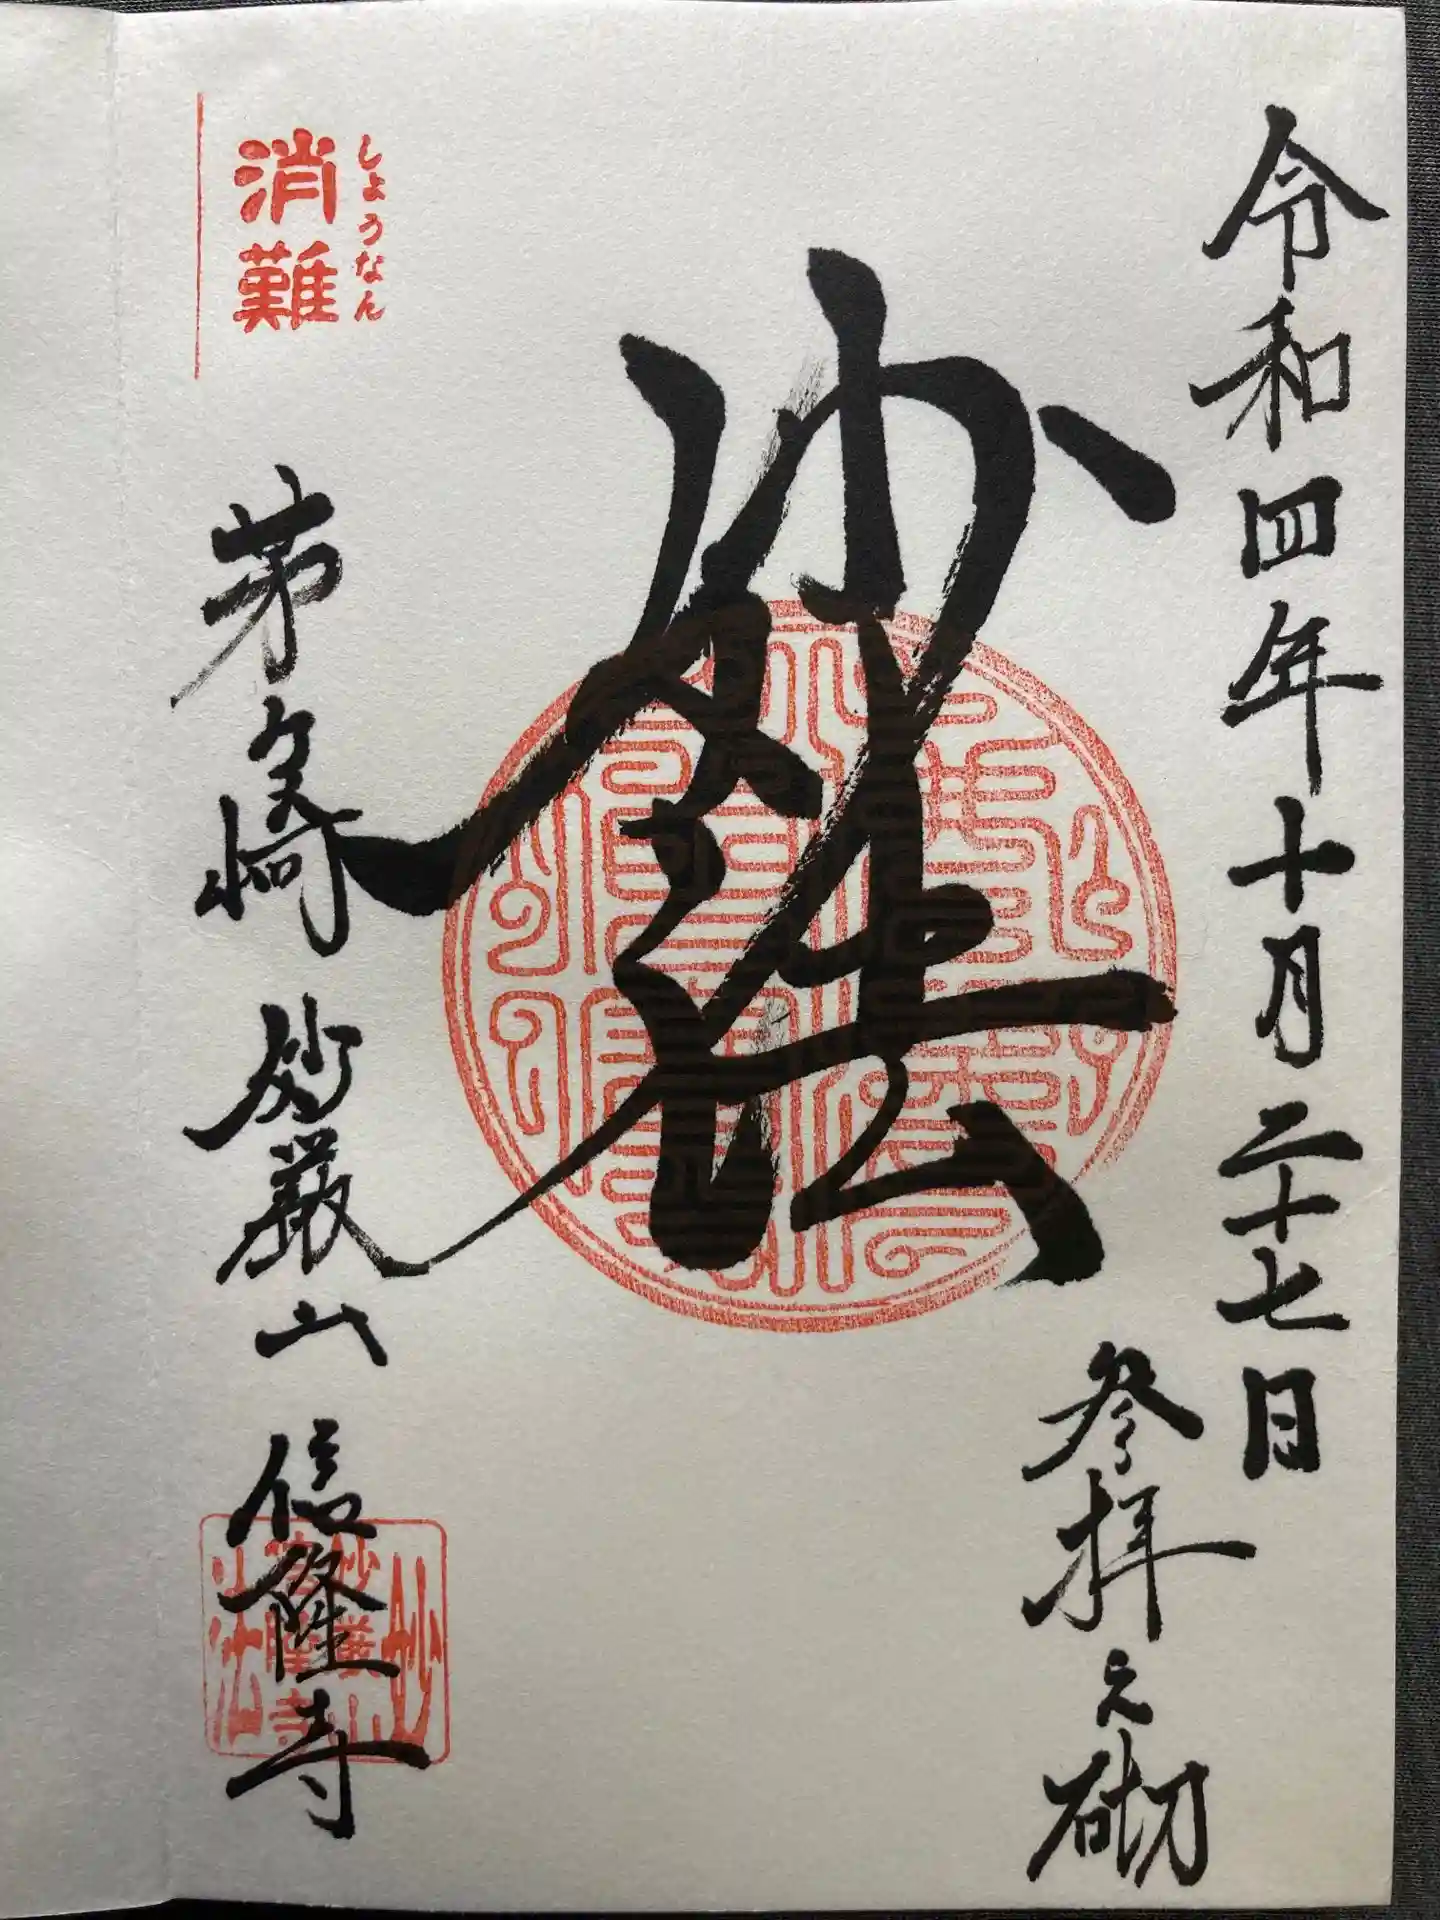 令和四年十月二十七日
参拝之砌
妙法
しょうなん
消難
茅ヶ崎 妙厳山 信隆寺
妙厳山
信隆寺